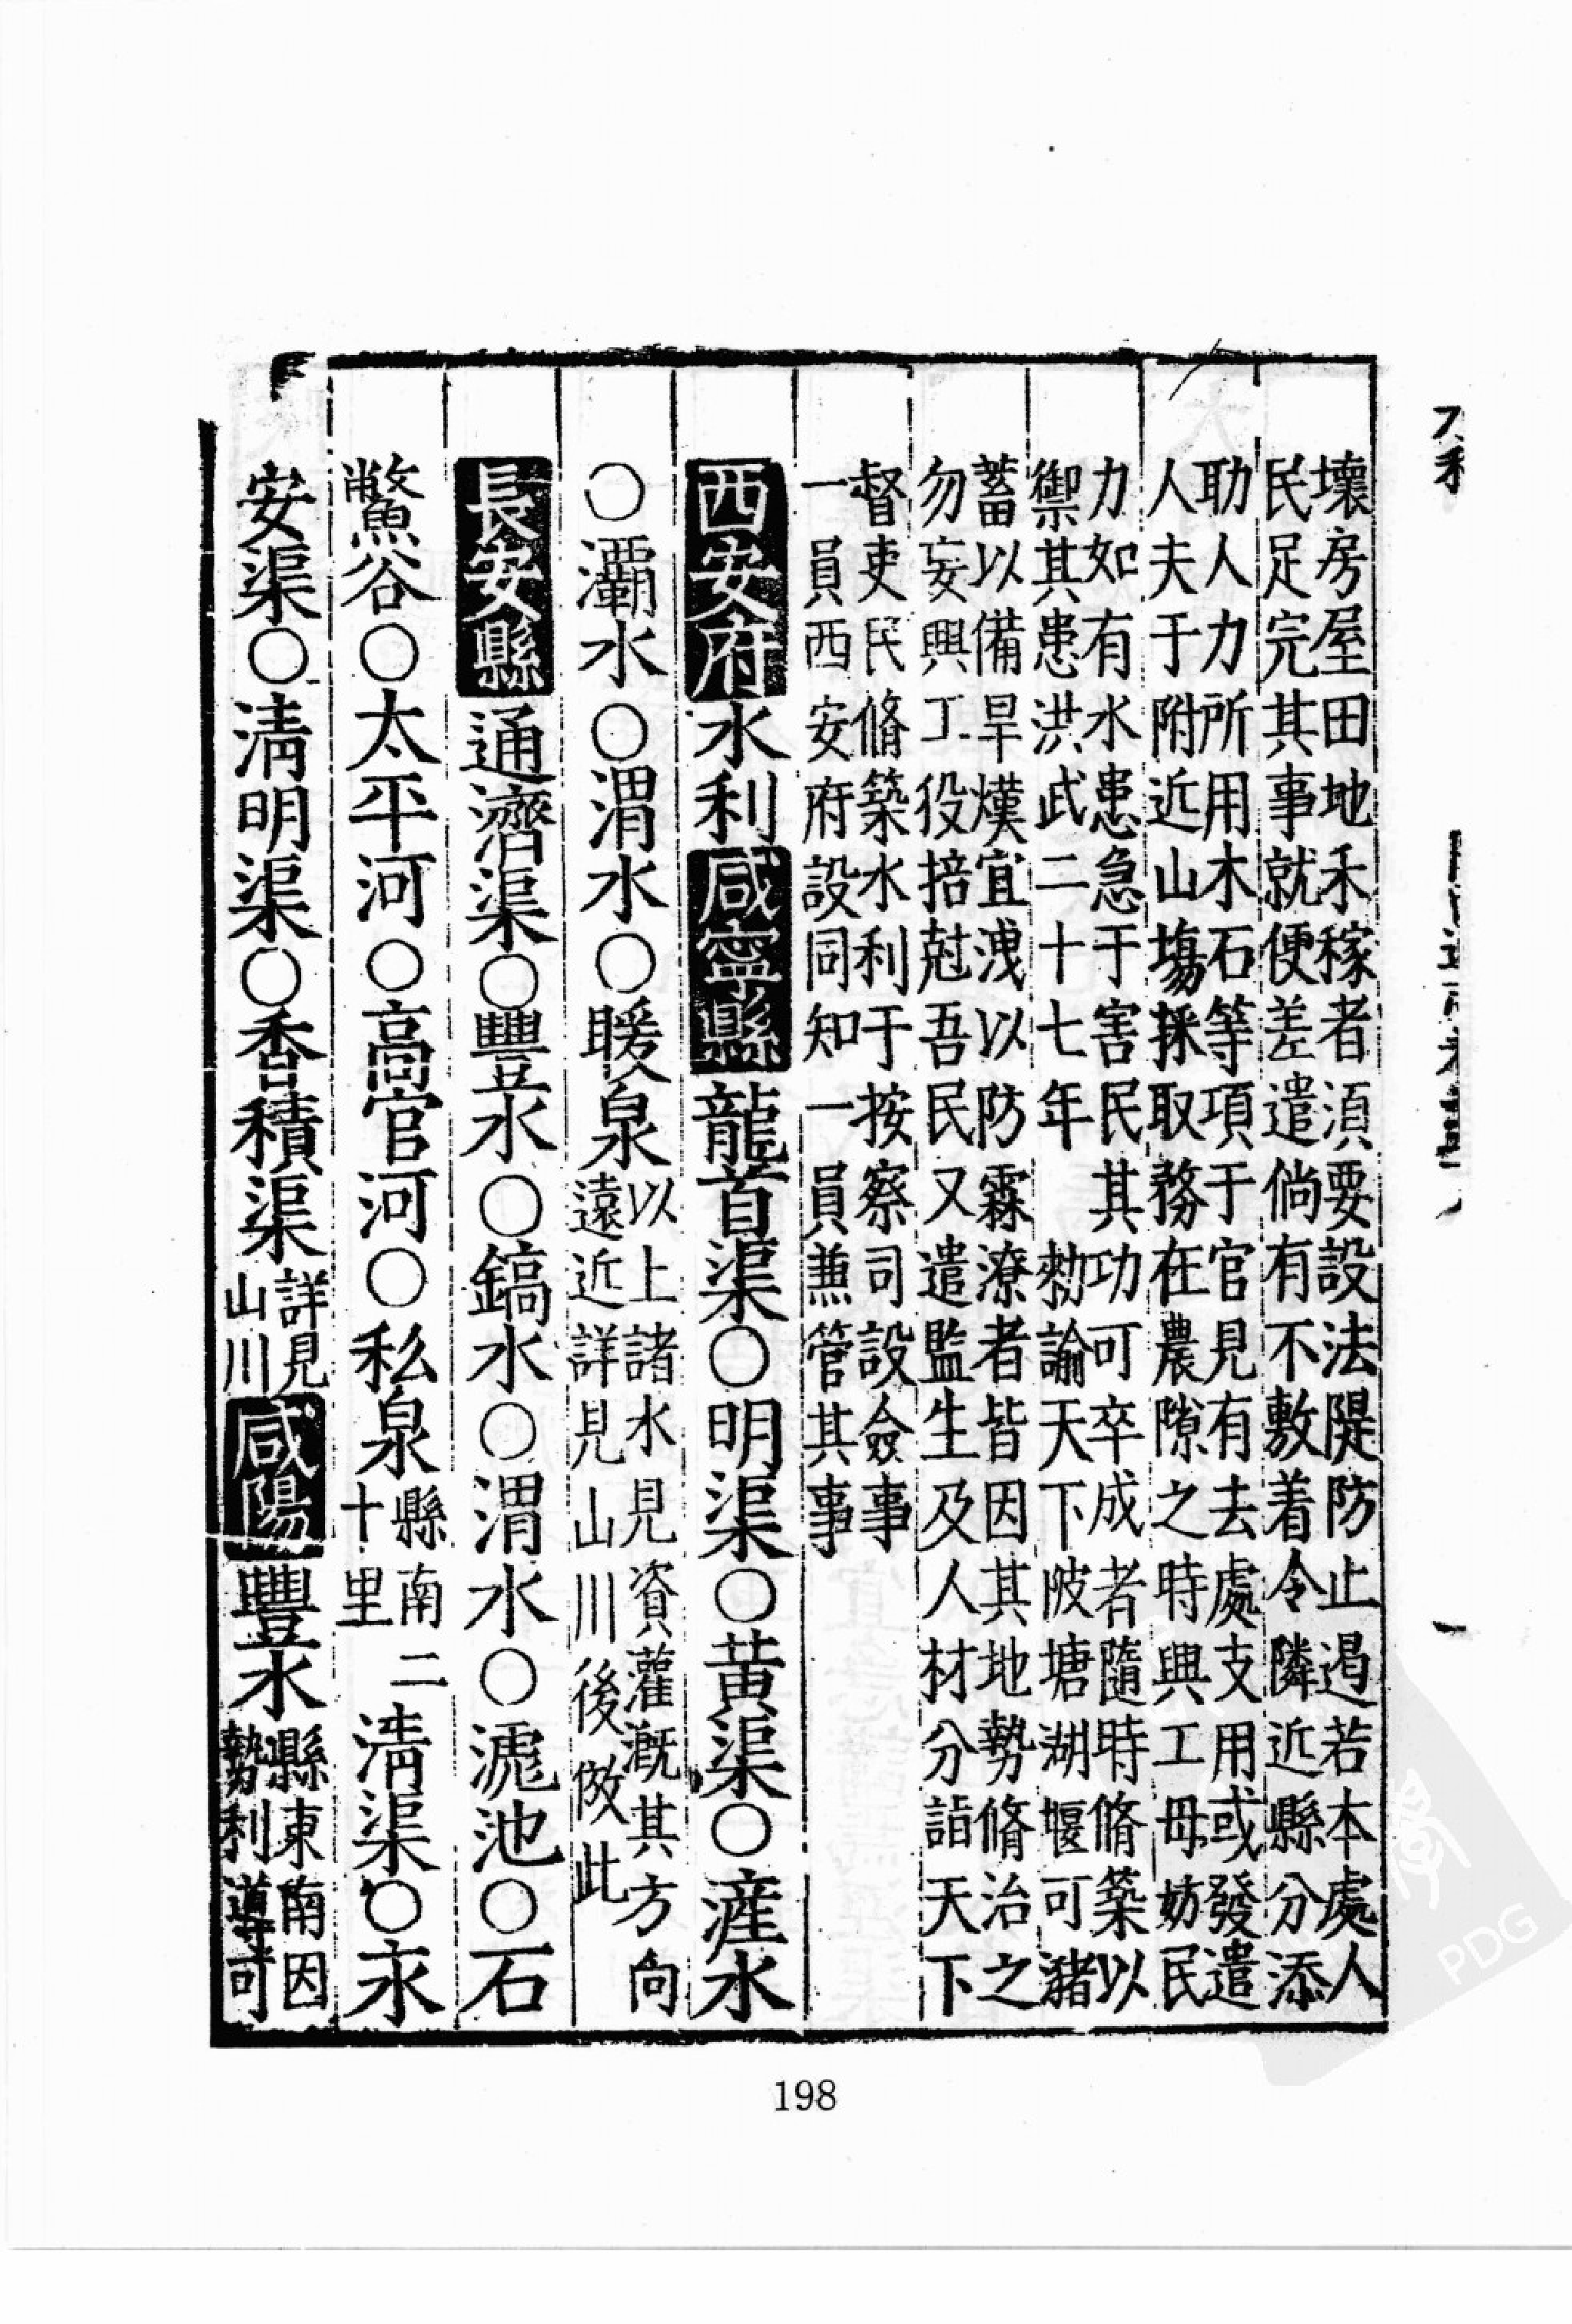 壞房屋田地禾稼者須要設法隄防止遏若本處人
民足完其事就便差遣倘有不敷着令隣近縣分添
助人力所用木石等項于官見有去處支用或發遣
人夫于附近山塲採取務在農隙之時興工毋妨民
力如有水患急于害民其功可卒成者隨時脩築以
禦其患洪武二十七年 勑諭天下陂塘湖堰可豬
蓄以備旱熯宜洩以防霖潦者皆因其地勢脩治之
勿妄興工役掊尅吾民又遣監生及人材分詣天下
督吏民脩築水利于按察司設僉事
一員西安府設同知一員兼管其事
西安府水利咸寧縣龍首渠〇明渠〇黃渠〇滻水
〇灞水〇渭水〇暖泉以上諸水見資灌漑其方向
遠近詳見山川後倣此
長安縣通濟渠〇豐水〇鎬水〇渭水〇滮池〇石
鱉谷〇太平河〇高官河〇私泉縣南二
十里
清渠〇永
安渠〇清明渠〇香積渠詳見
山川
咸陽豐水縣東南因
勢利導可
198